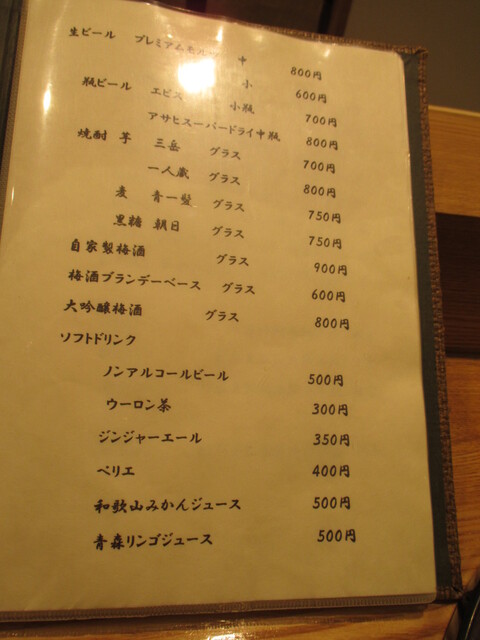 生ビール プレミアムモルツ 中 800円
小 600円
瓶ビール エビス 小瓶 700円
アサヒスーパードライ中瓶 800円
焼酎 芋 三岳 グラス 700円
一人蔵 グラス 800円
麦 青一髪 グラス 750円
黒糖 朝日 グラス 750円
自家製梅酒 グラス 900円
梅酒ブランデーベース グラス 600円
大吟醸梅酒 グラス 800円
ソフトドリンク
ノンアルコールビール 500円
ウーロン茶 300円
ジンジャーエール 350円
ペリエ 400円
和歌山みかんジュース 500円
青森リンゴジュース 500円